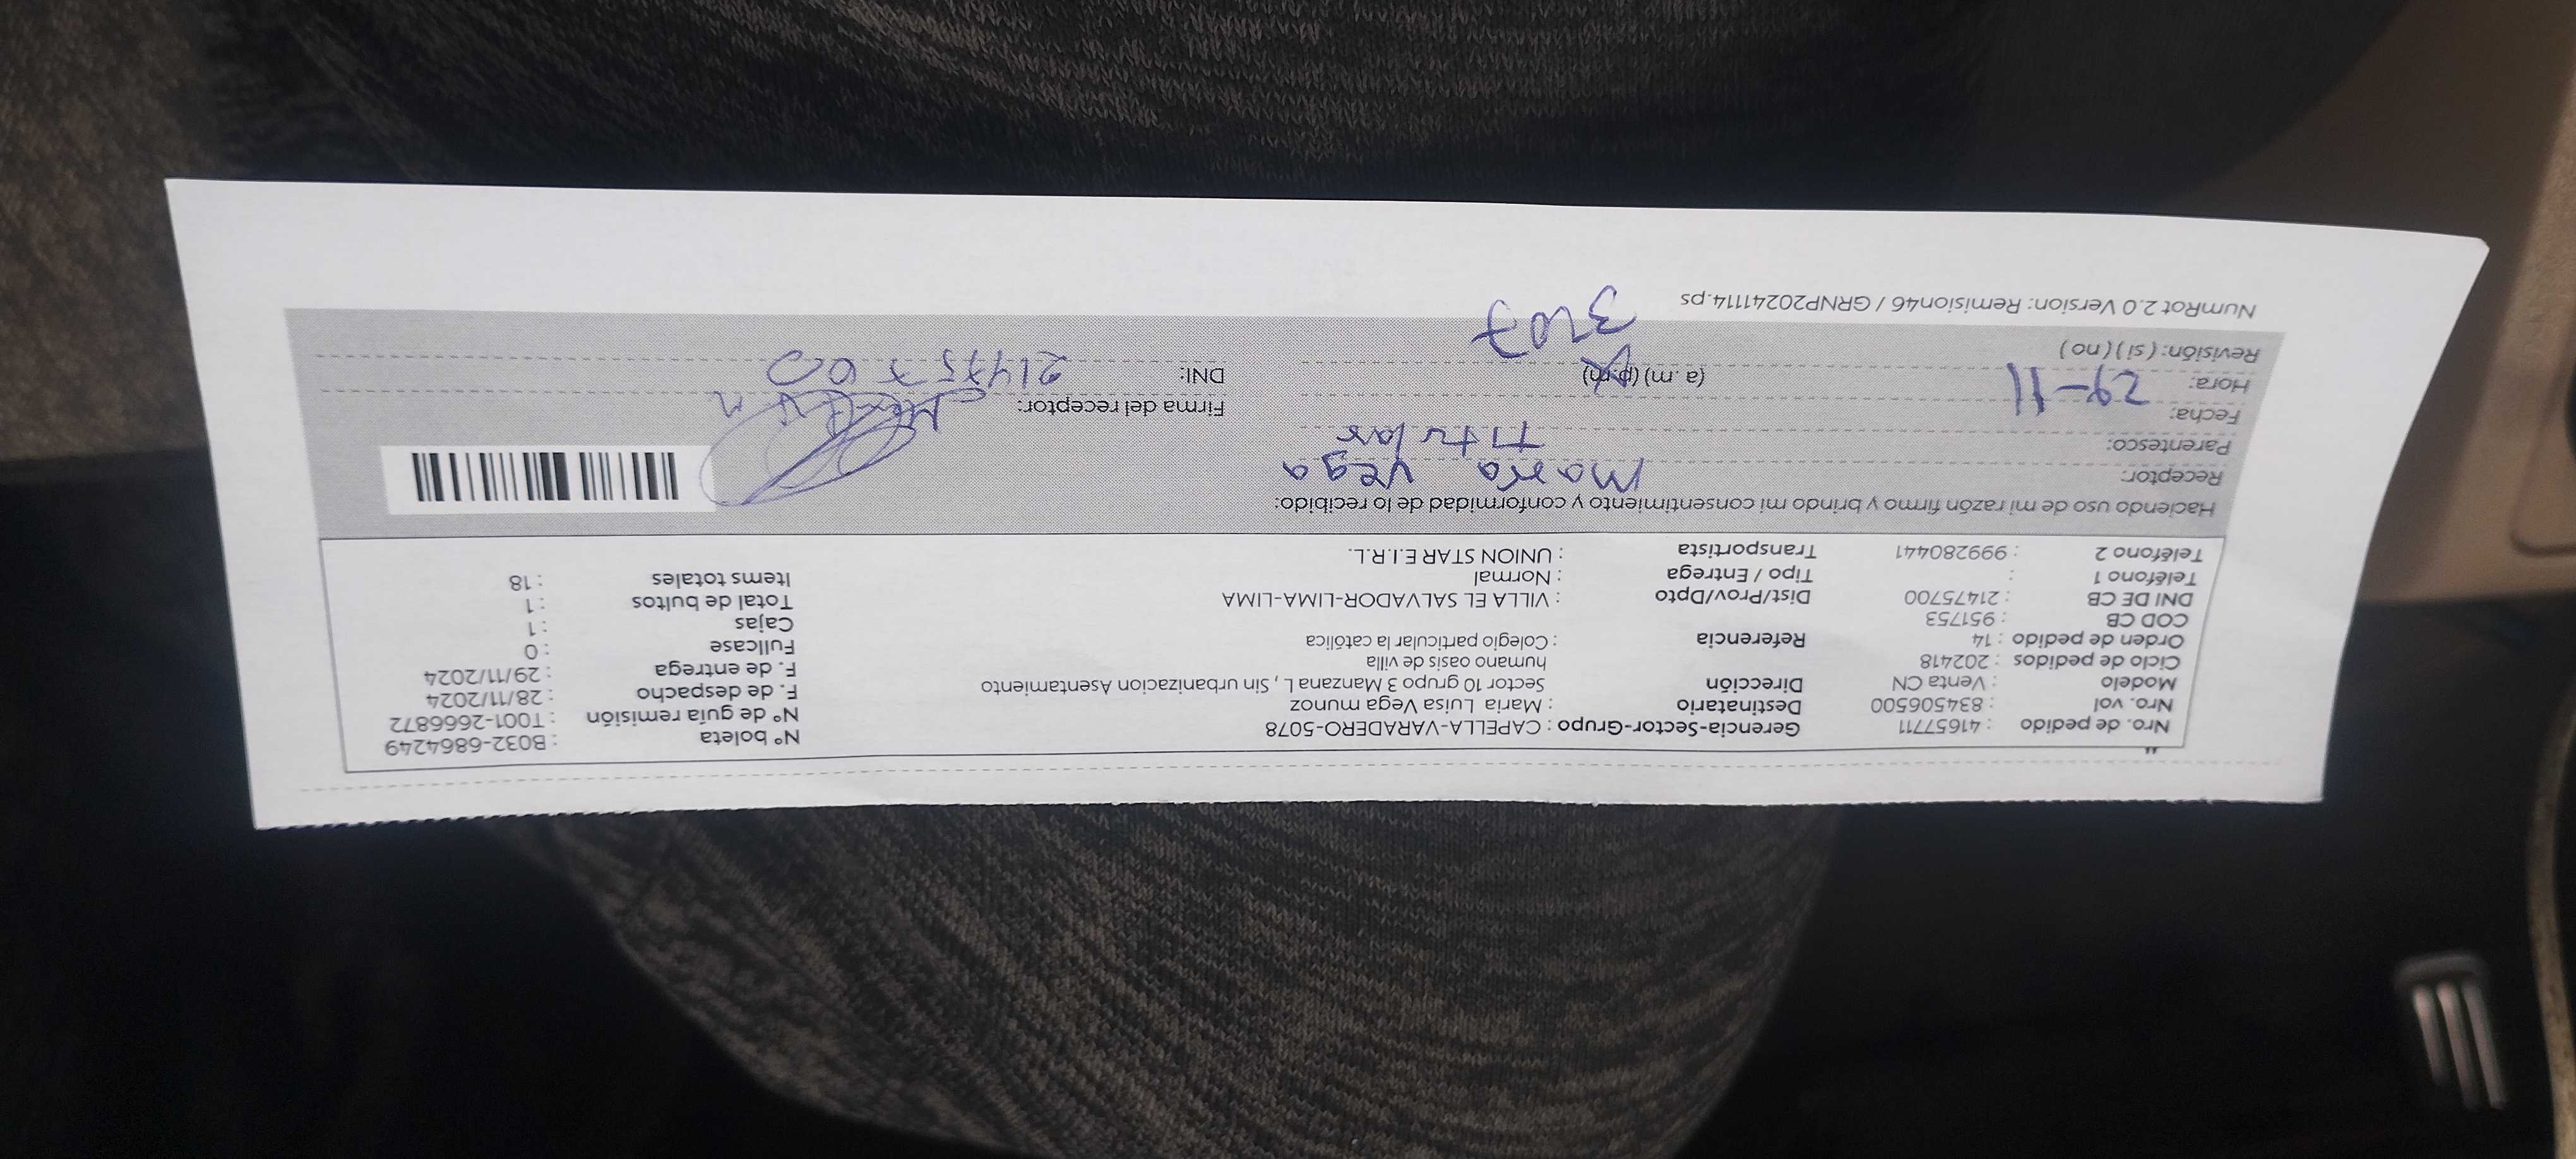 Nro. de pedido : 41657711 Gerencia-Sector-Grupo : CAPELLA-VARADERO-5078 N° boleta : B032-6864249
Nro. vol : 834506500 Destinatario : Maria Luisa Vega munoz N° de guía remisión : T001-2666872
Modelo : Venta CN Dirección Sector 10 grupo 3 Manzana L , Sin urbanizacion Asentamiento F. de despacho : 28/11/2024
Ciclo de pedidos : 202418 humano oasis de villa F. de entrega : 29/11/2024
Orden de pedido : 14 Referencia : Colegio particular la católica Fullcase : 0
COD CB : 951753 Cajas : 1
DNI DE CB : 21475700 Dist/Prov/Dpto : VILLA EL SALVADOR-LIMA-LIMA Total de bultos : 1
Teléfono 1 : Tipo / Entrega : Normal Items totales : 18
Teléfono 2 : 999280441 Transportista : UNION STAR E.I.R.L.
Haciendo uso de mi razón firmo y brindo mi consentimiento y conformidad de lo recibido:
Receptor: Maria Vega
Parentesco: Titular
Fecha: 29-11 Firma del receptor:
Hora: (a.m) (p.m) DNI: 21475700
Revisión: (si) (no) 3207
NumRot 2.0 Version: Remision46 / GRNP20241114.ps